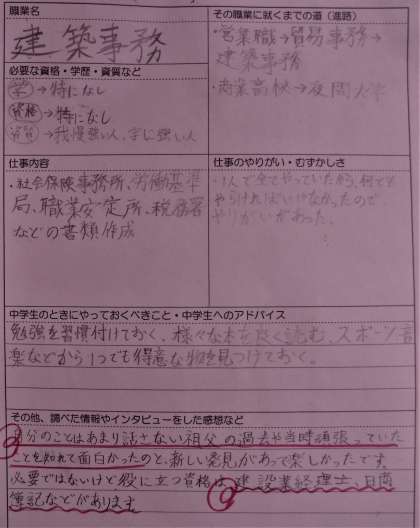 職業名
建築事務
その職業に就くまでの道（進路）
・営業職→貿易事務→
建築事務
・商業高校→夜間大学
必要な資格・学歴・資質など
学→特になし
資格→特になし
資質→我慢強い人、辛に強い人
仕事内容
・社会保険事務所、労働基準
局、職業安定所、税務署
などの書類作成
仕事のやりがい・むずかしさ
・1人で全てやっていたから、何でも
やらなければいけなかったので
やりがいがあった。
中学生のときにやっておくべきこと・中学生へのアドバイス
勉強を習慣付けておく、様々な本を良く読む、スポーツ音
楽などから1つでも得意な物を見つけておく。
その他、調べた情報やインタビューをした感想など
自分のことはあまり話さない祖父の過去や当時頑張っていた
ことを知れて面白かったのと、新しい発見があって楽しかったです。
必要ではないけど役に立つ資格は建設業経理士、日商
簿記などがあります